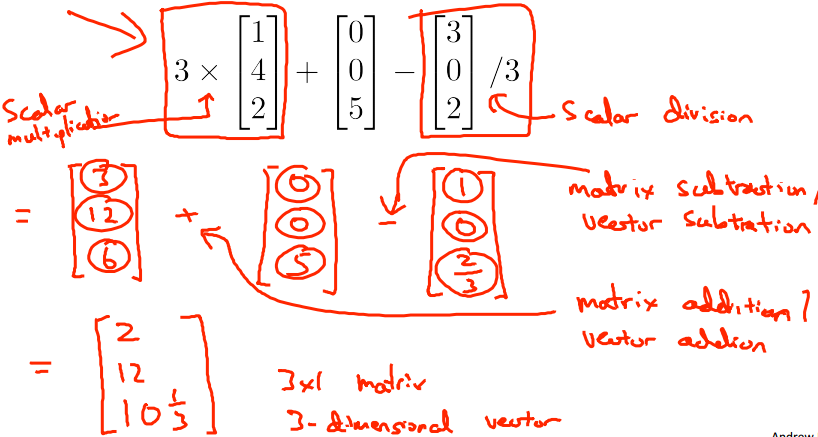 3 × [1 4 2] + [0 0 5] − [3 0 2] /3
Scalar
multiplication
Scalar division
= [3 12 6] + [0 0 5] - [1 0 2/3]
matrix subtraction /
vector subtration
matrix addition /
vector addion
= [2 12 10 1/3]
3x1 matrix
3-dimensional vector
Andrew